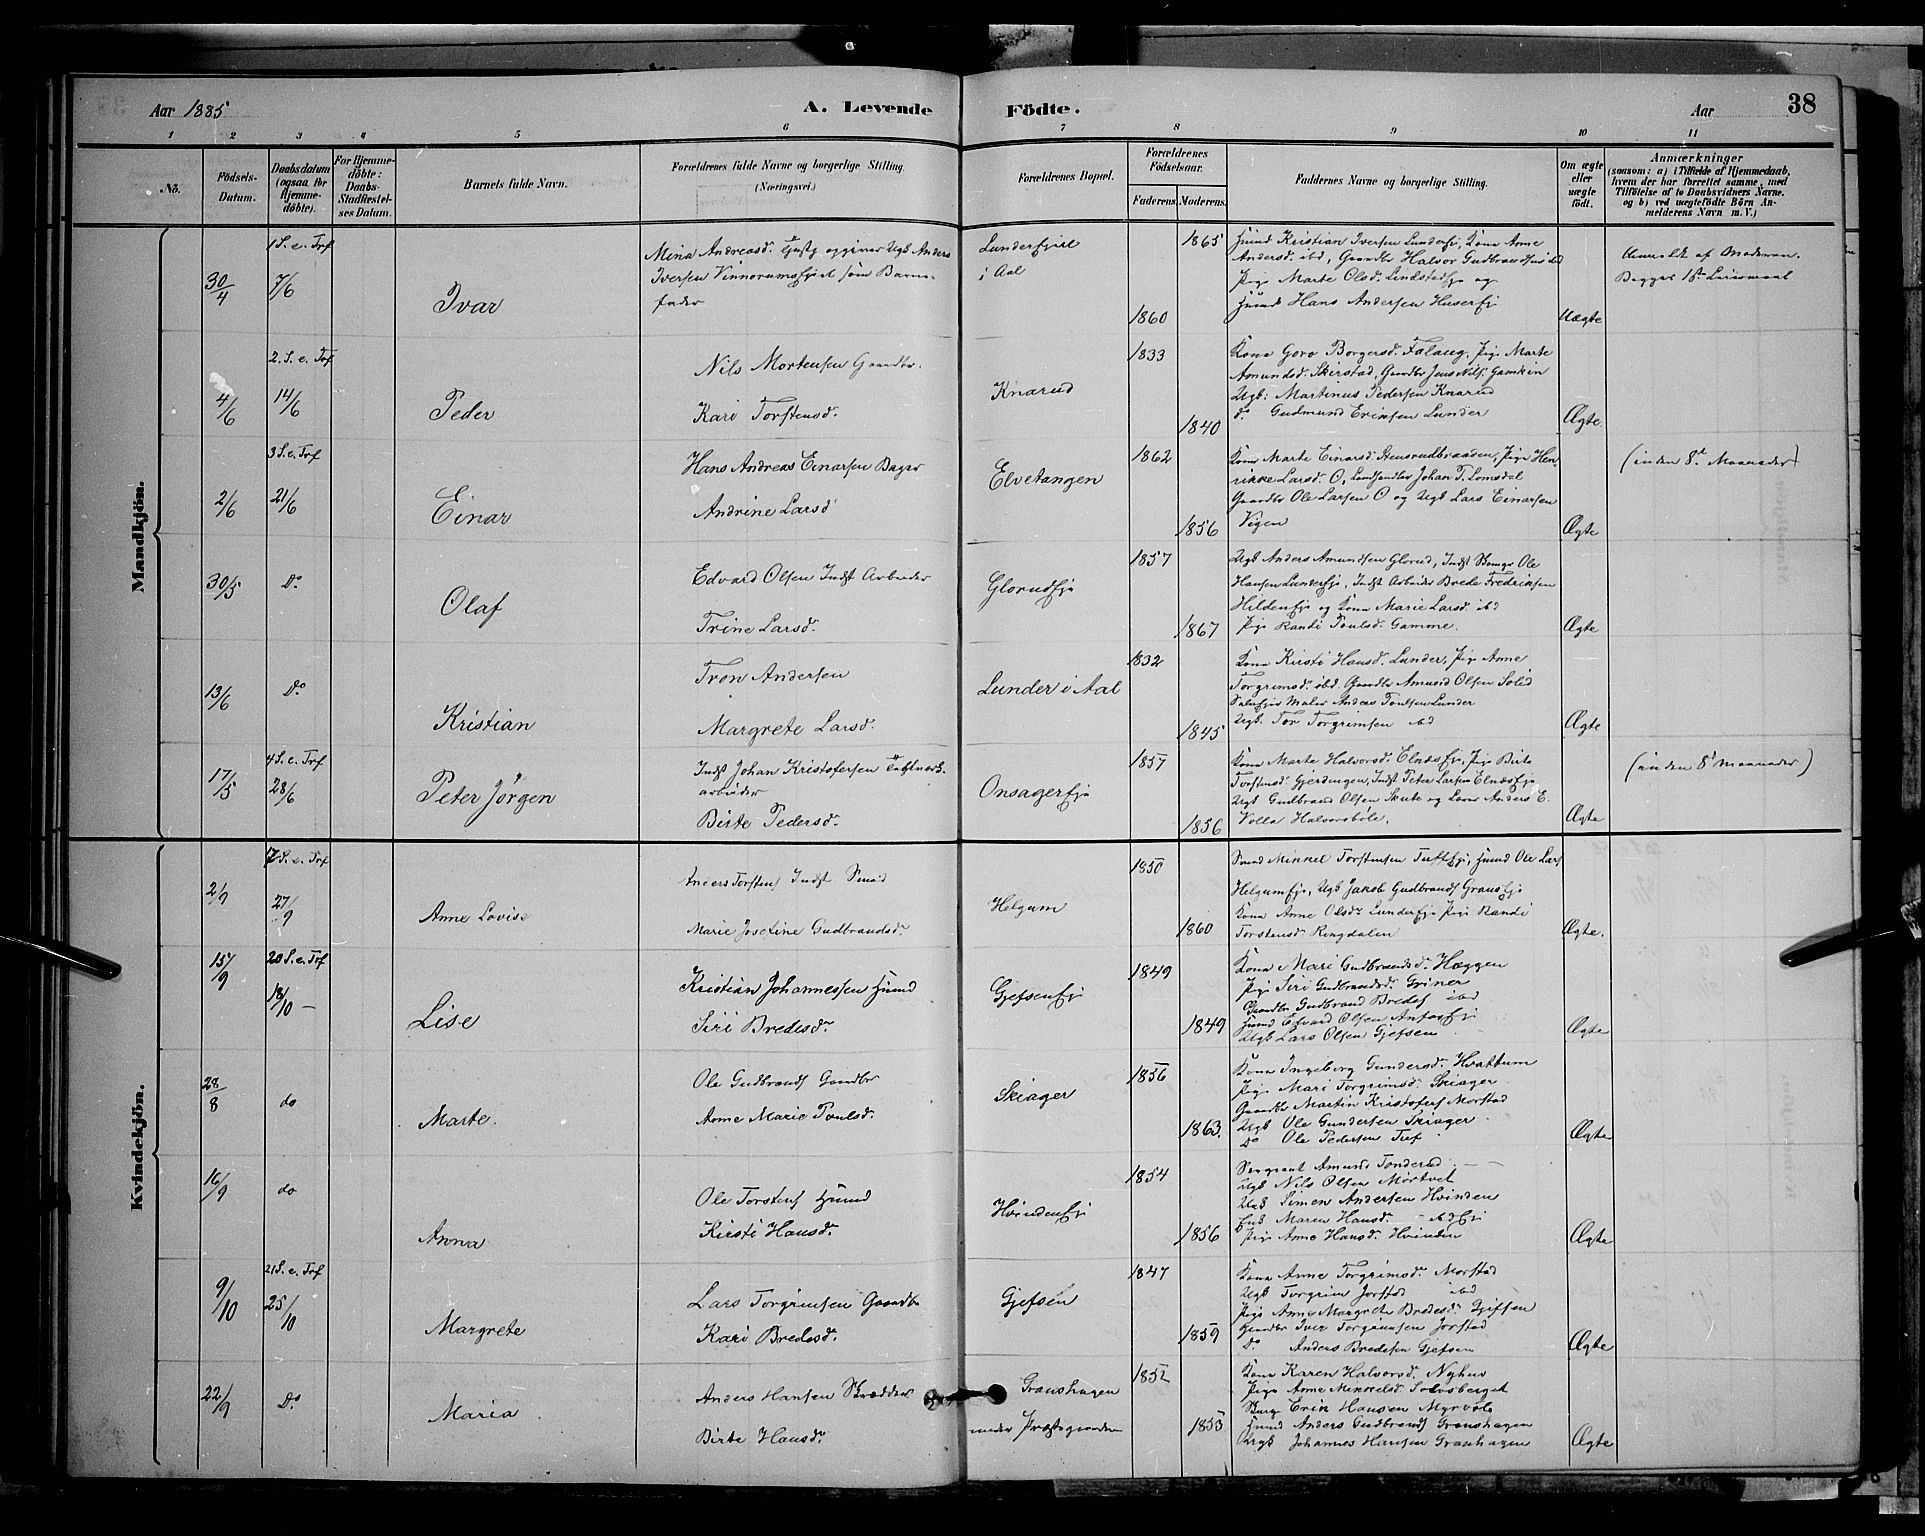 Aar 1885
A. Levende
Födte.
Aar
38
1 2 3 4 5 6 7 8 9 10 11
No.
Födsels-
Datum.
Daabsdatum
(ogsaa for
Hjemme-
döbte).
For Hjemme-
döbte:
Daabs-
Stadfæstel-
ses Datum.
Barnets fulde Navn.
Forældrenes fulde Navne og borgerlige Stilling
(Næringsvei.)
Forældrenes Bopæl.
Forældrenes
Födselsaar.
Faderens. Moderens.
Faddernes Navne og borgerlige Stilling.
Om ægte
eller
uægte
födt.
Anmærkninger
(saasom: a) i Tilfælde af Hjemmedaab,
hvem der har forrettet samme, med
Tilföielse af to Daabsvidners Navne,
og b) ved uægtefödte Börn An-
melderens Navn m. V.)
Mandkjön.
30/4
1 S. e. Tref
7/6
Ivar
Mina Andreasd.
opgiver Ugk. Anders
Iversen som Barne-
fader
Lunderfjeld
i Aal
1865
1860
Huusd Kristian Iversen Lunderfj, Kona Anne
Andersd. ibd, Gaardbr Halvor Gudbrandsen
Pige Marte Olsd.
Huusd Hans Andersen Huserfj
Uægte
Anmeldt af Moderen.
Begges 1ste Leiermaal
4/6
2. S. e. Tref
14/6
Peder
Nils Mortensen Gaardbr.
Kari Torstensd.
Knarud
1833
1840
Kona Goro Borgersd. Falang, Pige Marte
Amundsd. Skirstad, Gaardbr Jens Nils. Gamkin
Ugk: Martinus Pedersen Knarud
Do Gudmund Eriksen Lunder
Ægte
2/6
3 S. e. Tref
21/6
Einar
Hans Andreas Einarsen Bager
Andrine Larsd
Elvetangen
1862
1856
Kona Marte Einarsd. Pige Hen-
rikke Larsd. O, Landhandler Johan T. Lomsdal
Gaardbr Ole Larsen O og Ugk Lars Einarsen
Vigen
Ægte
(inden 8t Maaneder)
30/5
Do
Olaf
Edvard Olsen Indst Arbeider
Trine Larsd.
Glorudfje
1857
1867
Ugk Anders Amundsen Glorud, Indst Ole
Hansen Lunderfj, Indst Arbeider Brede Fredriksen
Hildenfje og Kona Marie Larsd. ibd
Pige Randi Poulsd. Gamme.
Ægte
13/6
Do
Kristian
Tron Andersen
Margrete Larsd.
Lunder i Aal
1832
1845
Kona Kirsti Hansd. Lunder, Pige Anne
Torgrimsd. ibd. Gaardbr Amund Olsen
Maler Anders Poulsen Lunder
Ugk. Tor Torgrimsen ibd
Ægte
17/5
4 S. e. Tref
28/6
Peter Jørgen
Indst Johan Kristofersen
arbeider
Birte Pedersd.
Onsagerfje
1857
1856
Kona Marte Halvorsd. Elnesfje, Pige Birte
Torstensd. Gjerdingen, Indst Peter Larsen Elnæsfje
Ugk Gudbrand Olsen Skute og Lærer Anders E.
Volla Halvorsböle.
Ægte
(inden 8 Maaneder)
Kvindekjön.
2/9
17 S. e. Tref
27/9
Anne Lovise
Anders Torstens. Indst Smed
Marie Josefine Gudbrandsd.
Helgum
1850
1860
Smed Mikkel Torstensen Tuftfje, Huusd Ole Lars
Helgumfje, Ugk Jakob Gudbrands. Gransfje
Kona Anne Olsd. Lunderfje Pige Randi
Torstensd. Ringdalen
Ægte.
15/9
20 S. e. Tref
18/10
Lise
Kristian Johannessen Huusd
Siri Bredesd.
Gjefsenfje
1849
1849
Kona Mari Gudbrandsd. Hæggen
Pige Siri Gudbrandsd. Griner
Gaardbr Gudbrand Bredes. ibd
Huusd Edvard Olsen
Ugk Lars Olsen Gjefsen
Ægte
28/8
do
Marte.
Ole Gudbrands. Gaardbr
Anne Marie Poulsd.
Skiager
1856
1863.
Kona Ingeborg Gundersd. Hvattum
Pige Mari Torgrimsd. Skiager
Gaardbr Martin Kristofers. Morstad
Ugk Ole Gundersen Skiager
Do Ole Pedersen Tuf
Ægte
16/9
do
Anna
Ole Torstens. Huusd
Kirsti Hansd.
Hvindenfje
1854
1856
Sergeant Amund Tonderud
Ugk Nils Olsen Mörtvet
Ugk Simen Andersen Hvinden
Maren Hansd. ibdfje
Pige Anne Hansd. Hvinden
Ægte
9/10
21 S. e. Tref
25/10
Margrete
Lars Torgrimsen Gaardbr
Kari Bredesd.
Gjefsen
1847
1859
Kona Anne Torgrimsd. Morstad
Ugk Torgrim Jorstad ibd
Pige Anne Margrete Bredesd. Gjefsen
Gaardbr Iver Torgrimsen Jorstad
Do Anders Bredesen Gjefsen
Ægte
22/9
Do
Maria
Anders Hansen Skrædder
Birte Hansd.
Granshagen
under Præstegaarden
1852
1853
Kona Karen Halvorsd. Nyhus
Pige Anne Mikkelsd. Solvsberget
Erik Hansen Myrvold
Huusd Anders Gudbrands. Granshagen
Ugk Johannes Hansen Granhagen
Ægte